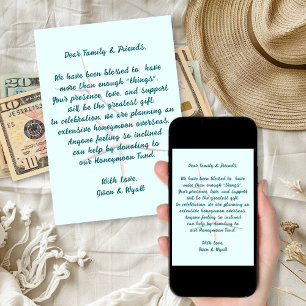 Dear Family & Friends,
We have been blessed to have
more than enough "things".
Your presence, love, and support
will be the greatest gift.
In celebration, we are planning an
extensive honeymoon overseas.
Anyone feeling so inclined
can help by donating to
our Honeymoon Fund.
With love,
Gwen & Wyatt
Dear Family & Friends,
We have been blessed to have
more than enough "things".
Your presence, love, and support
will be the greatest gift.
In celebration, we are planning an
extensive honeymoon overseas.
Anyone feeling so inclined
can help by donating to
our Honeymoon Fund.
With love,
Gwen & Wyatt